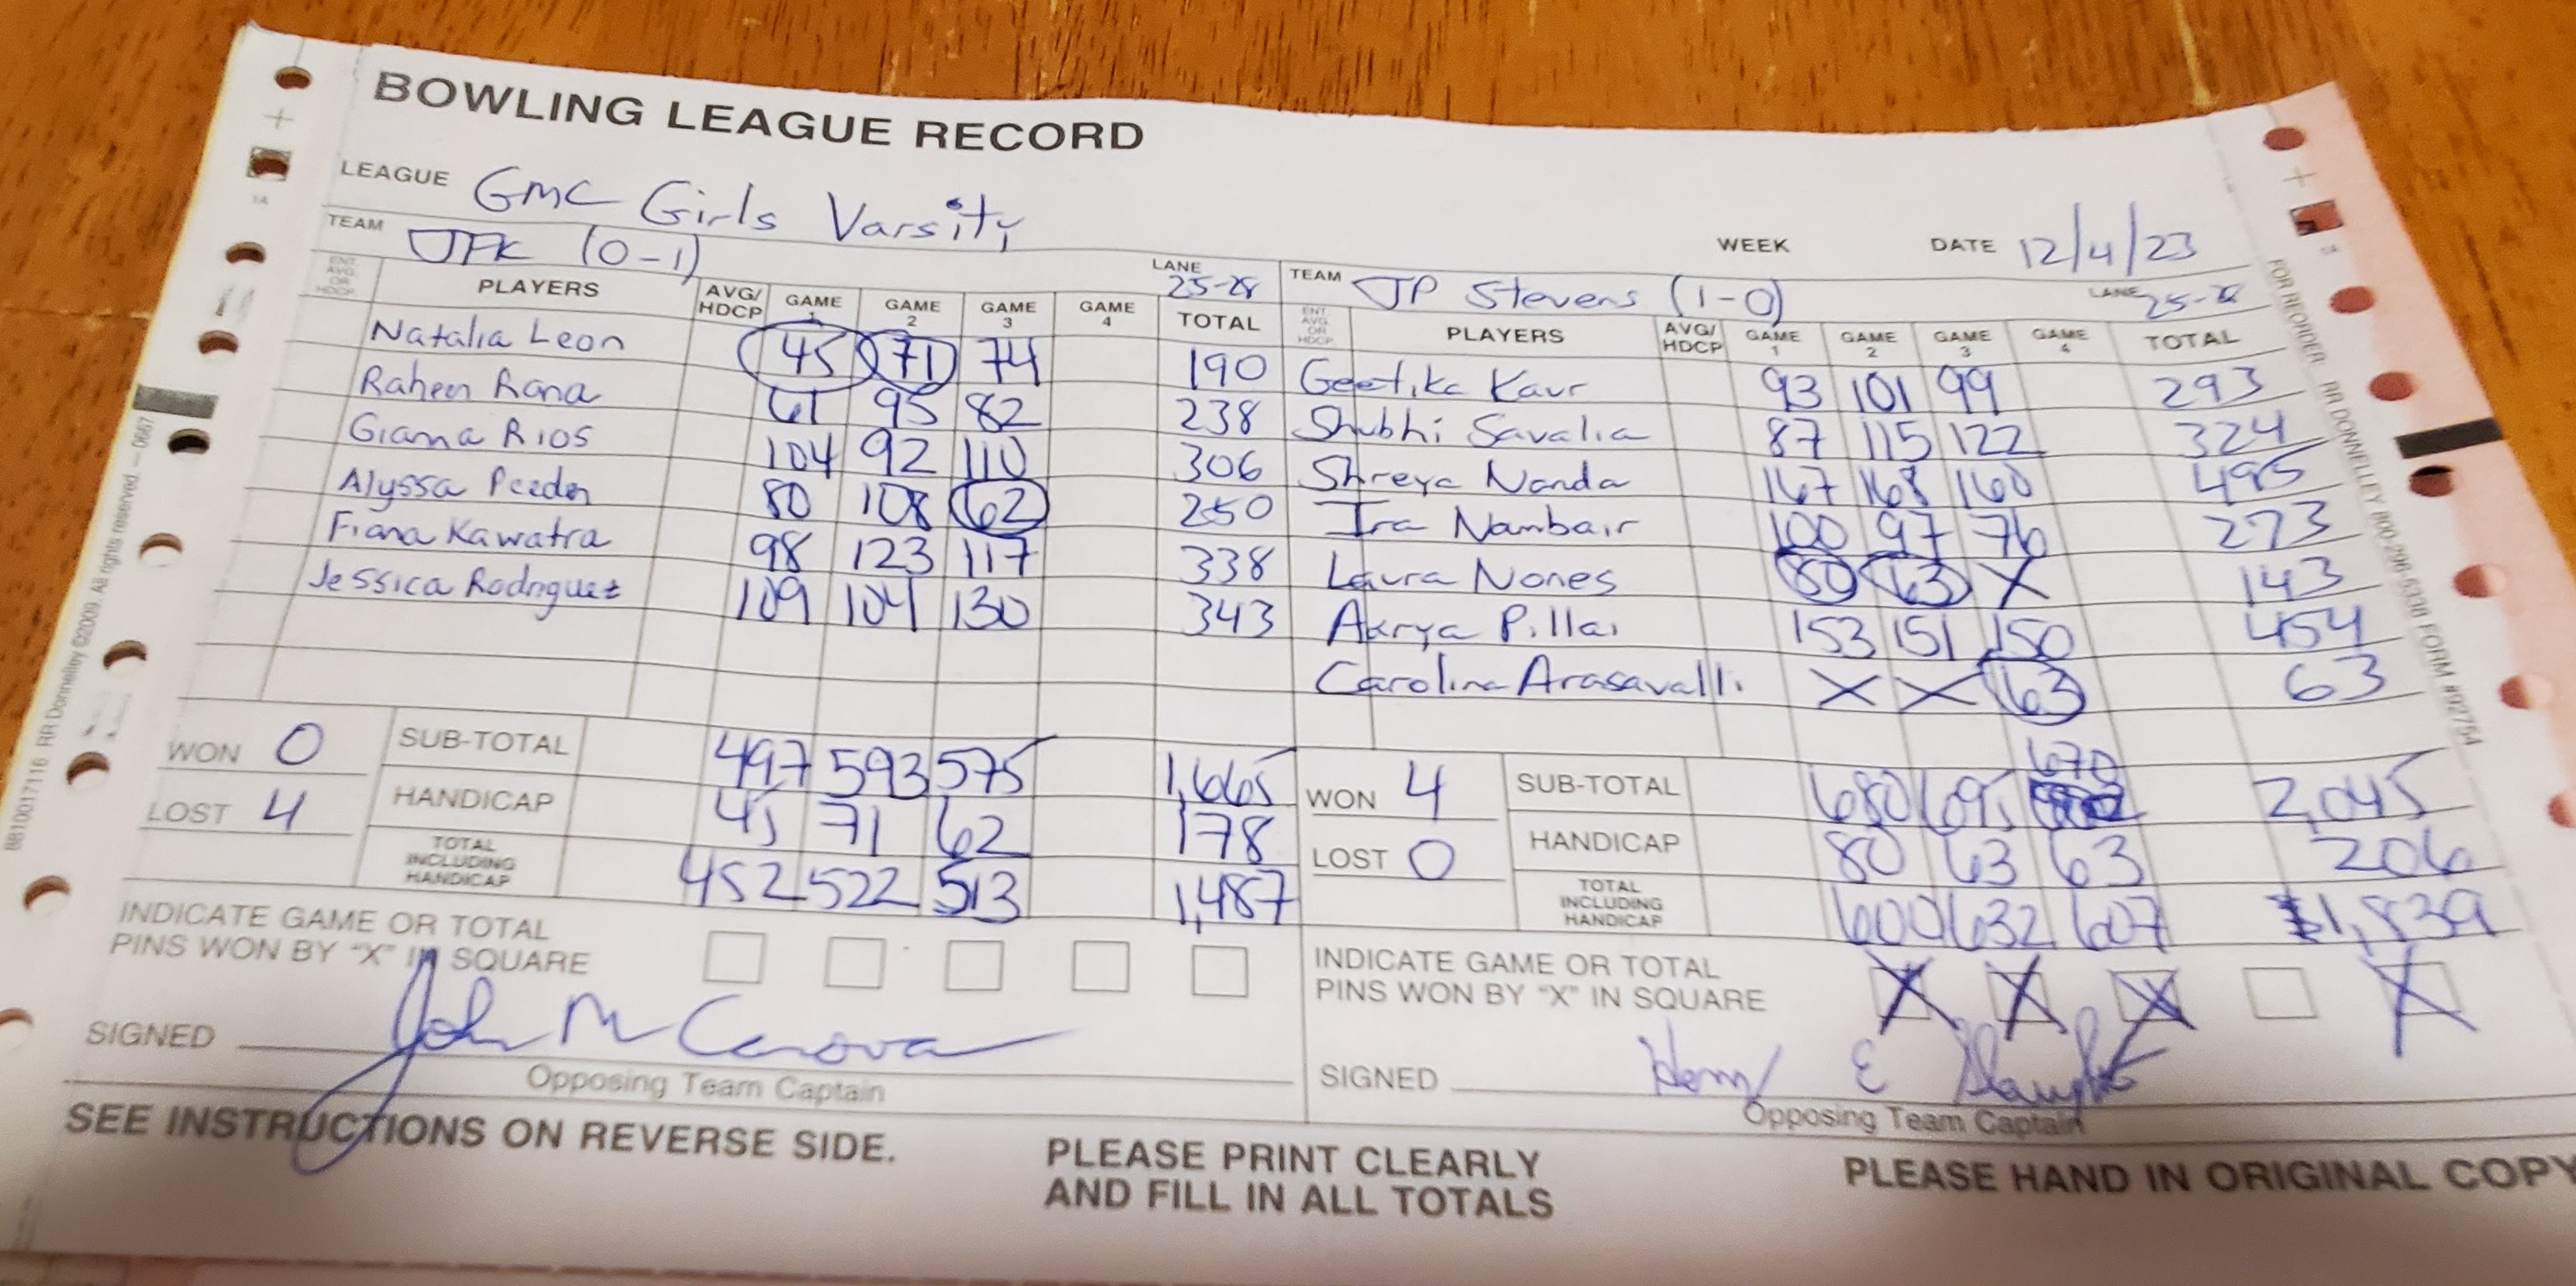 BOWLING LEAGUE RECORD
LEAGUE GMC Girls Varsity
WEEK DATE 12/4/23
TEAM JFK (0-1) LANE 25-28
ENT. AVG. OR HDCP. PLAYERS AVG/HDCP GAME 1 GAME 2 GAME 3 GAME 4 TOTAL
Natalia Leon 45 71 74 190
Raheen Rana 61 95 82 238
Giama Rios 104 92 110 306
Alyssa 80 108 62 250
Fiana Kawatra 98 123 117 338
Jessica Rodriguez 109 104 130 343
WON 0 SUB-TOTAL 497 593 575 1,665
LOST 4 HANDICAP 45 71 62 178
TOTAL INCLUDING HANDICAP 452 522 513 1,487
INDICATE GAME OR TOTAL
PINS WON BY "X" IN SQUARE
SIGNED John M
Opposing Team Captain
TEAM JP Stevens (1-0) LANE 25-28
ENT. AVG. OR HDCP. PLAYERS AVG/HDCP GAME 1 GAME 2 GAME 3 GAME 4 TOTAL
Geetika Kaur 93 101 99 293
Shubhi Savalia 87 115 122 324
Shreya Nanda 167 168 160 495
Ira Nambair 100 97 76 273
Laura Nones 80 63 X 143
Akrya Pillai 153 151 150 454
Carolina Arasavalli X X 63 63
670
WON 4 SUB-TOTAL 680 695 2,045
LOST 0 HANDICAP 80 63 63 206
TOTAL INCLUDING HANDICAP 600 632 607 1,839
INDICATE GAME OR TOTAL
PINS WON BY "X" IN SQUARE X X X X
SIGNED
Opposing Team Captain
SEE INSTRUCTIONS ON REVERSE SIDE.
PLEASE PRINT CLEARLY
AND FILL IN ALL TOTALS
PLEASE HAND IN ORIGINAL COPY
8810017116 RR Donnelley ©2009. All rights reserved. — 0667
FOR REORDER: RR DONNELLEY 800-296-5338 FORM #92754
1A